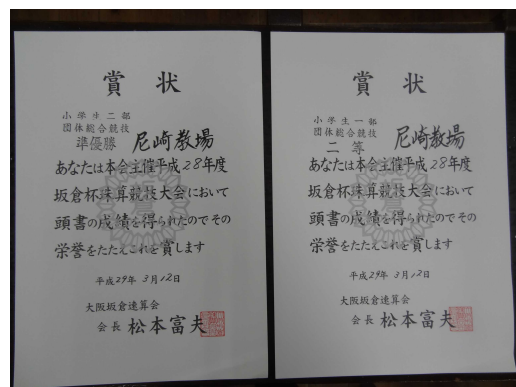 賞状
小学生二部
団体総合競技
準優勝 尼崎教場
あなたは本会主催平成28年度
坂倉杯珠算競技大会において
頭書の成績を得られたのでその
栄誉をたたえこれを賞します
平成29年 3月12日
大阪坂倉速算会
会長 松本富夫
賞状
小学生一部
団体総合競技
二等 尼崎教場
あなたは本会主催平成28年度
坂倉杯珠算競技大会において
頭書の成績を得られたのでその
栄誉をたたえこれを賞します
平成29年 3月12日
大阪坂倉速算会
会長 松本富夫